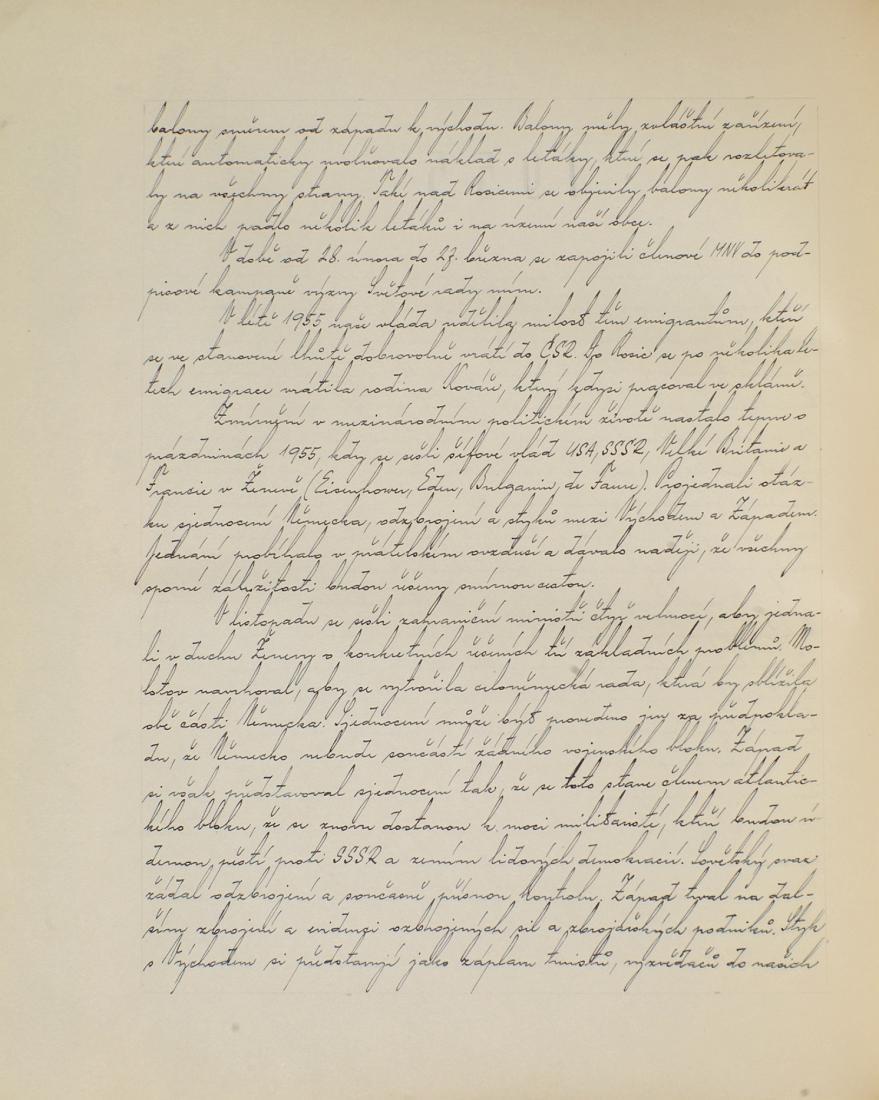 balony směrem od západu k východu. Balony měly zvláštní zařízení,
které automaticky uvolňovalo náklad s letáky, které se pak rozletova-
ly na všechny strany. Také nad Rosicemi se objevily balony několikrát
a z nich padlo několik letáků i na území naší obce.
V době od 28. února do 27. března se zapojili členové MNV do pod-
pisové kampaně výzvy Světové rady míru.
V létě 1955 naše vláda udělila milost těm emigrantům, kteří
se ve stanovené lhůtě dobrovolně vrátí do ČSR. Do Rosic se po několika le-
tech emigrace vrátila rodina Kováře, který kdysi pracoval ve sklárně.
Zmírnění v mezinárodním politickém životě nastalo teprve o
prázdninách 1955, kdy se sešli šéfové vlád USA, SSSR, Velké Britanie a
Francie v Ženevě (Eisenhower, Eden, Bulganin, de Faure). Projednali otáz-
ku sjednocení Německa, odzbrojení a styků mezi Východem a Západem.
Jednání probíhalo v přátelském ovzduší a dávalo naději, že všechny
sporné záležitosti budou řešeny smírnou cestou.
V listopadu se sešli zahraniční ministři čtyř velmocí, aby jedna-
li v duchu Ženevy o konkretních řešeních tří základních problémů. Mo-
lotov navrhoval, aby se vytvořila celoněmecká rada, která by sblížila
obě části Německa. Sjednocení může být provedeno jen za předpokla-
du, že Německo nebude součástí žádného vojenského bloku. Západ
si však představoval sjednocení tak, že se toto stane členem atlantic-
kého bloku, že se znovu dostanou k moci militaristé, kteří budou ú-
dernou pěstí proti SSSR a zemím lidových demokracií. Sovětský svaz
žádal odzbrojení a současně přísnou kontrolu. Západ trval na dal-
ším zbrojení a evidenci ozbrojených sil a zbrojařských podniků. Styk
s Východem si představují jako záplavu turistů, vyzvědačů do našich